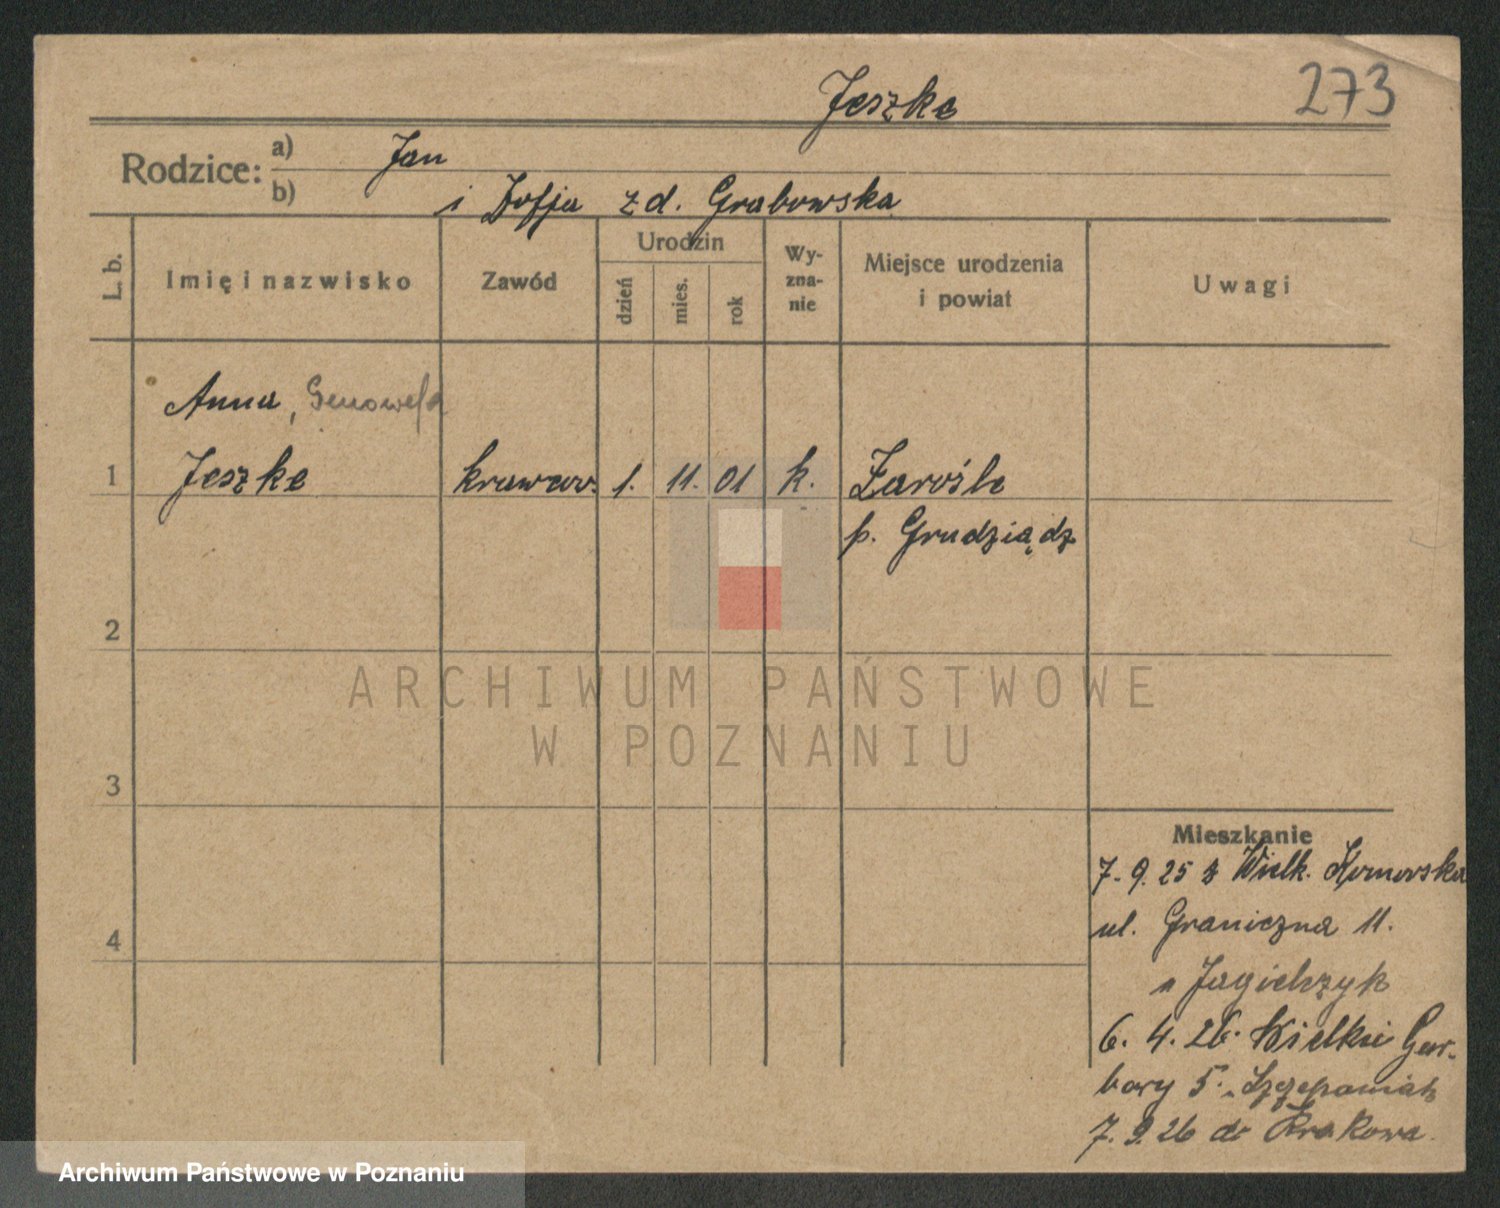 273
Jeszke
Rodzice: a) Jan
b) i Zofja zd. Grabowska
L. b.
Imię i nazwisko
Zawód
Urodzin
dzień
mies.
rok
Wy-
zna-
nie
Miejsce urodzenia
i powiat
Uwagi
Anna, Genowefa
1 Jeszke krawcow. 1. 11. 01 k. Zarośle
p. Grudziądz
2
ARCHIWUM PAŃSTWOWE
W POZNANIU
3
Mieszkanie
7. 9. 25 z Wielk. Komorska
ul. Graniczna 11.
4
u Jagielczyk
6. 4. 26. Wielkie Gar-
bary 5. Szczepaniak
7. 9. 26 do Krakowa.
Archiwum Państwowe w Poznaniu